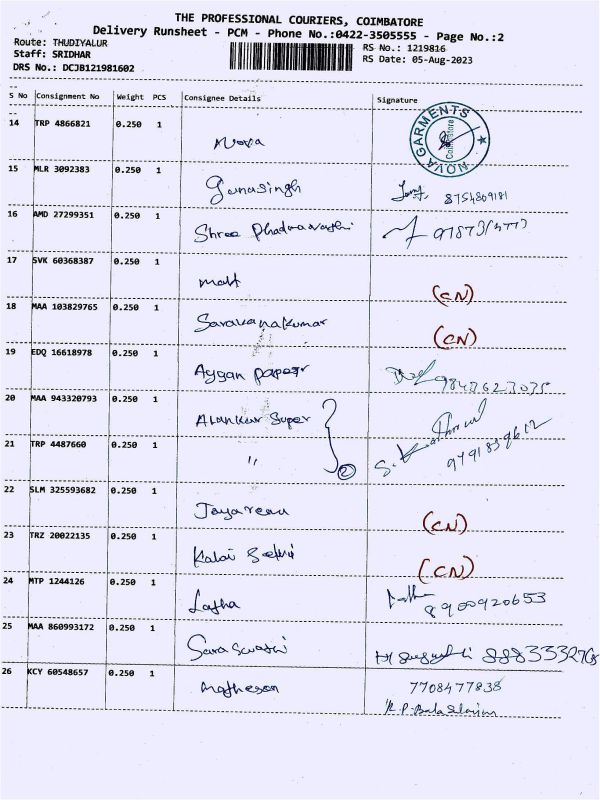 THE PROFESSIONAL COURIERS, COIMBATORE
Delivery Runsheet - PCM - Phone No.:0422-3505555 - Page No.:2
Route: THUDIYALUR RS No.: 1219816
Staff: SRIDHAR RS Date: 05-Aug-2023
DRS No.: DCJB121981602
S No Consignment No Weight PCS Consignee Details Signature
14 TRP 4866821 0.250 1 Nova NOVA GARMENTS Coimbatore
15 MLR 3092383 0.250 1 Gunasingh 8754809181
16 AMD 27299351 0.250 1 Shree
17 SVK 60368387 0.250 1 (CN)
18 MAA 103829765 0.250 1 Saravanakumar (CN)
19 EDQ 16618978 0.250 1 Ayyan 9843623035
20 MAA 943320793 0.250 1 Alankar Super
21 TRP 4487660 0.250 1 " 2 9791839612
22 SLM 325593682 0.250 1 Jayaram (CN)
23 TRZ 20022135 0.250 1 Kalai (CN)
24 MTP 1244126 0.250 1 Latha 8900920653
25 MAA 860993172 0.250 1 Saraswathi
26 KCY 60548657 0.250 1 Matheson 7708477838